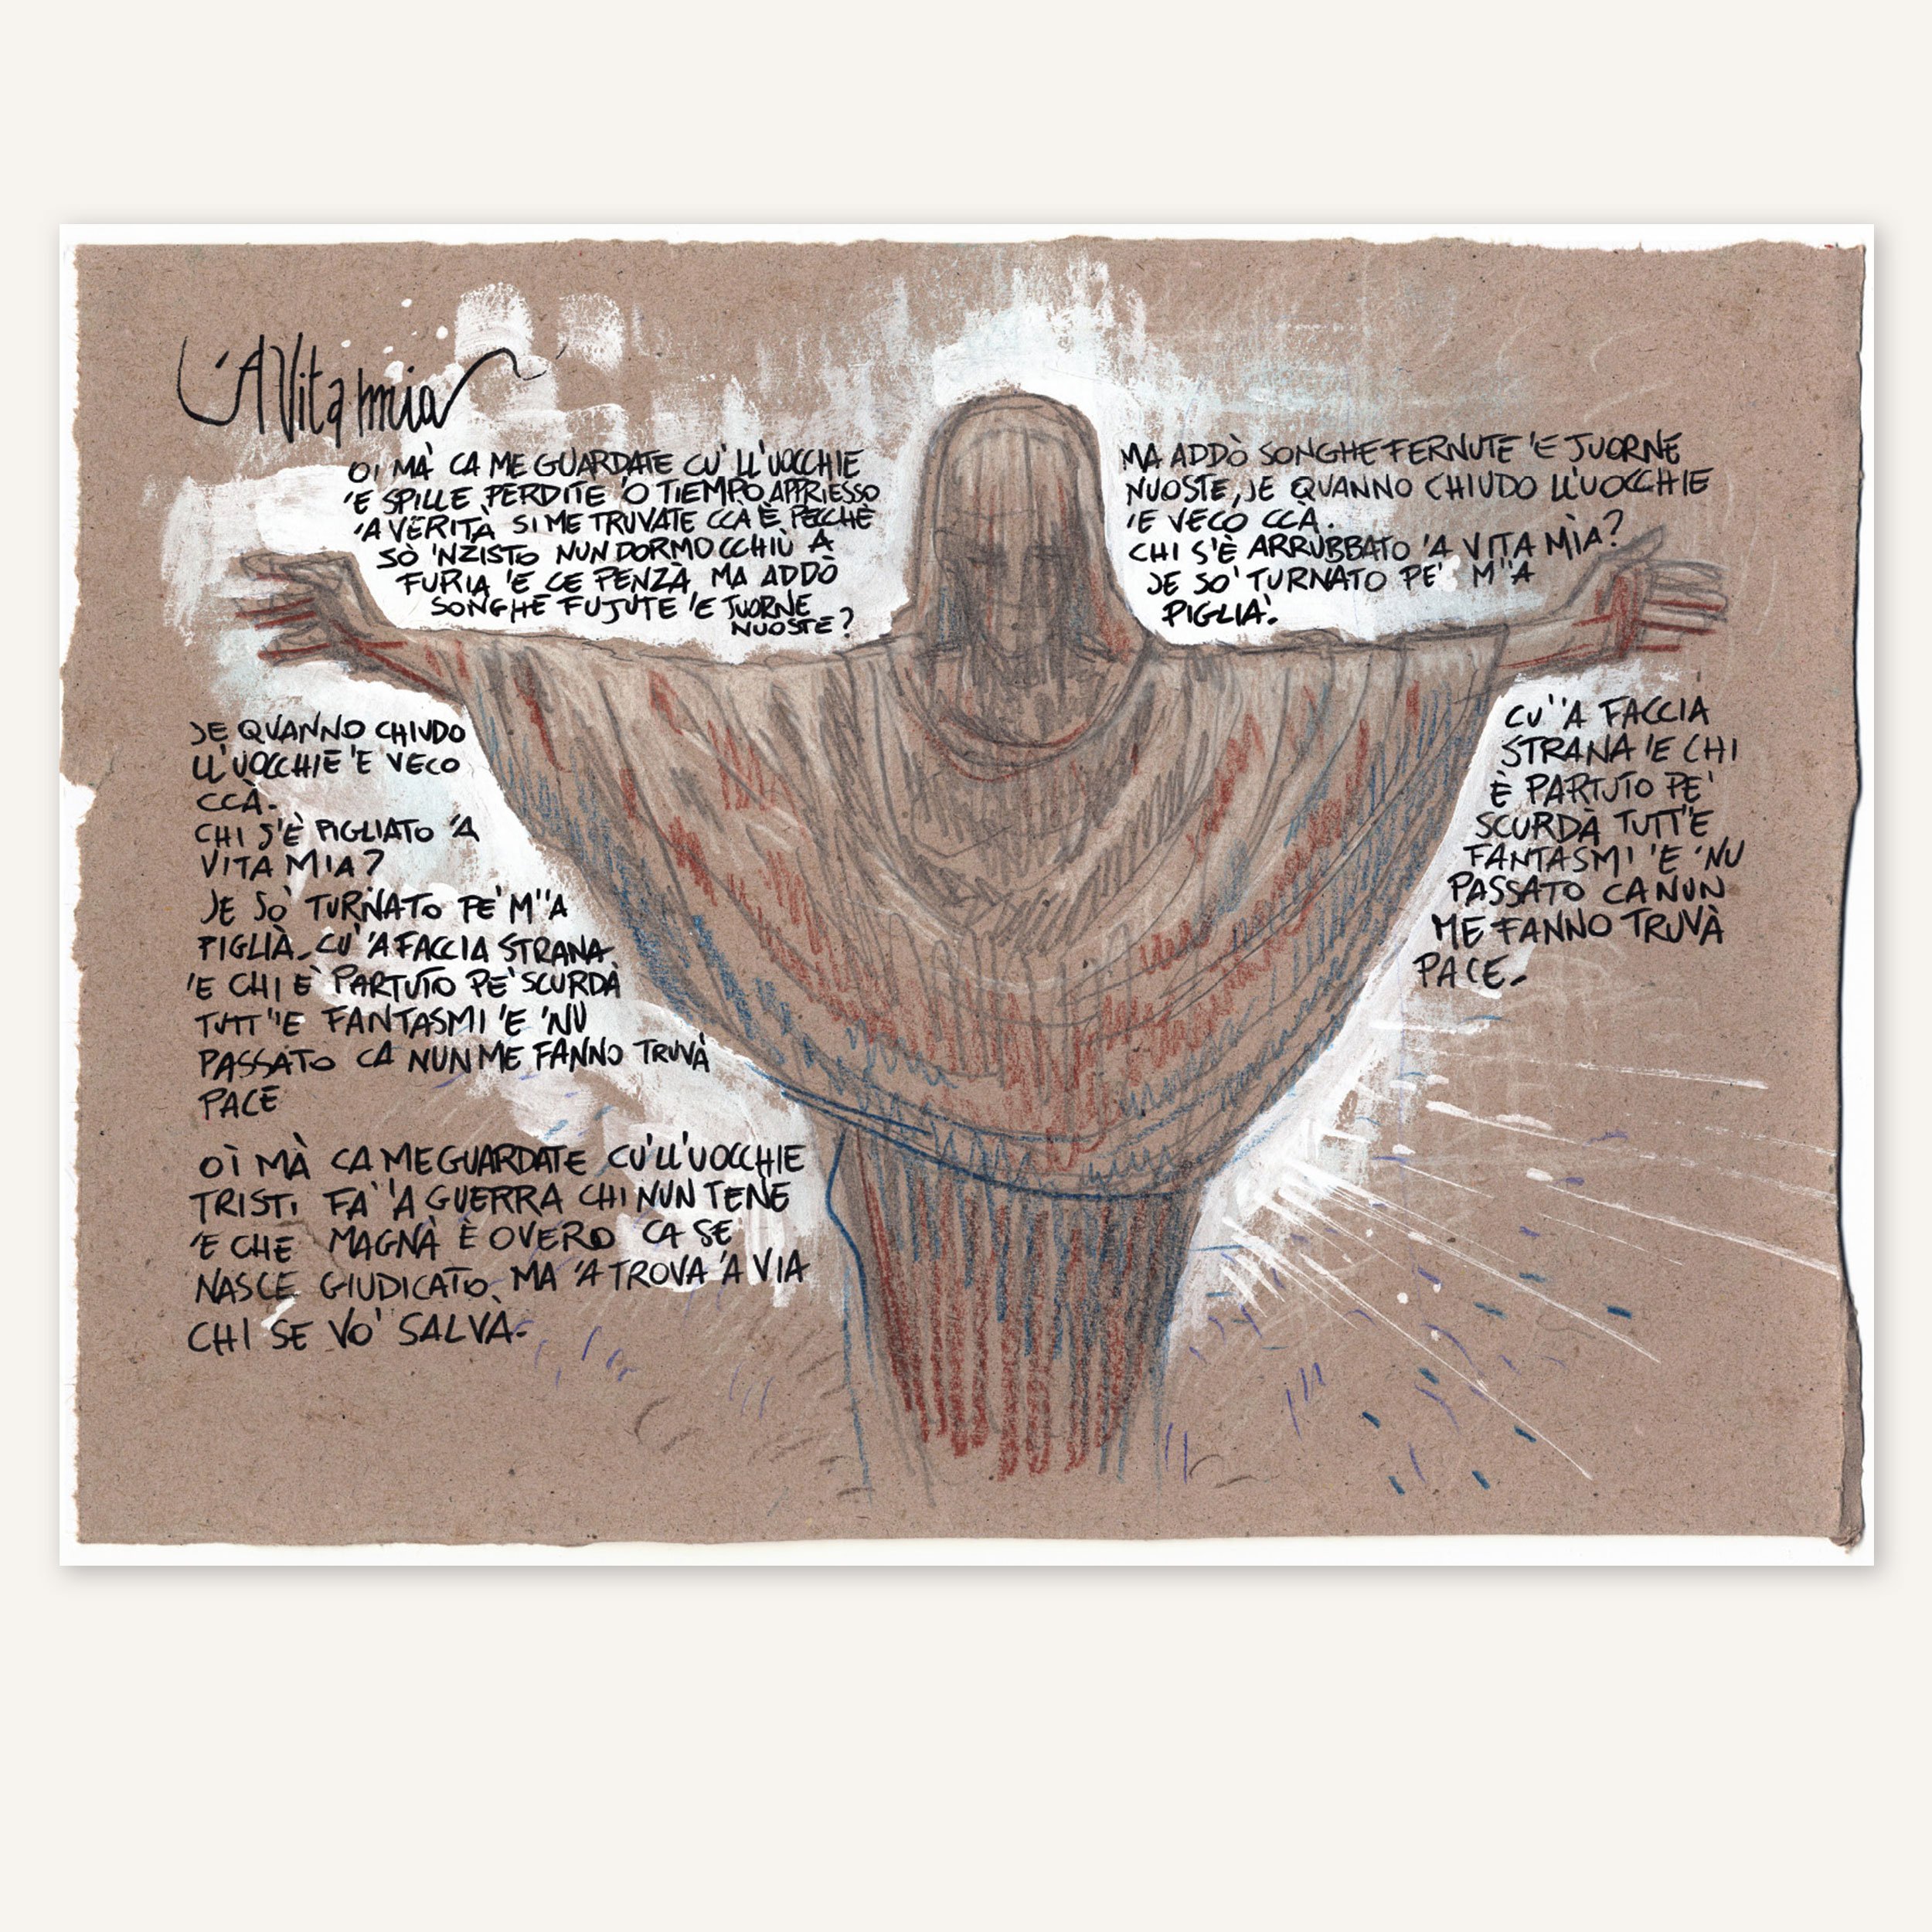 'A Vita mia
OI MÀ CA ME GUARDATE CU' LL'UOCCHIE
'E SPILLE PERDITE 'O TIEMPO APPRIESSO
'A VERITÀ SI ME TRUVATE CCA È PECCHÈ
SÒ 'NZISTO NUN DORMO CCHIÙ A
FURIA 'E CE PENZÀ MA ADDÒ
SONGHE FUJUTE 'E JUORNE
NUOSTE?
JE QUANNO CHIUDO
LL'UOCCHIE 'E VECO
CCÀ.
CHI S'È PIGLIATO 'A
VITA MIA?
JE SO' TURNATO PE' M''A
PIGLIÀ. CU' 'A FACCIA STRANA
'E CHI È PARTUTO PE' SCURDÀ
TUTT''E FANTASMI 'E 'NU
PASSATO CA NUN ME FANNO TRUVÀ
PACE
OÌ MÀ CA ME GUARDATE CU'LL'UOCCHIE
TRISTI FA' 'A GUERRA CHI NUN TENE
'E CHE MAGNÀ È OVERO CA SE
NASCE GIUDICATO, MA 'A TROVA 'A VIA
CHI SE VO' SALVÀ.
MA ADDÒ SONGHE FERNUTE 'E JUORNE
NUOSTE, JE QUANNO CHIUDO LL'UOCCHIE
'E VECO CCÀ.
CHI S'È ARRUBBATO 'A VITA MÌA?
JE SO' TURNATO PE' M''A
PIGLIA'.
CU' 'A FACCIA
STRANA 'E CHI
È PARTUTO PE'
SCURDÀ TUTT'E
FANTASMI 'E 'NU
PASSATO CA NUN
ME FANNO TRUVÀ
PACE.